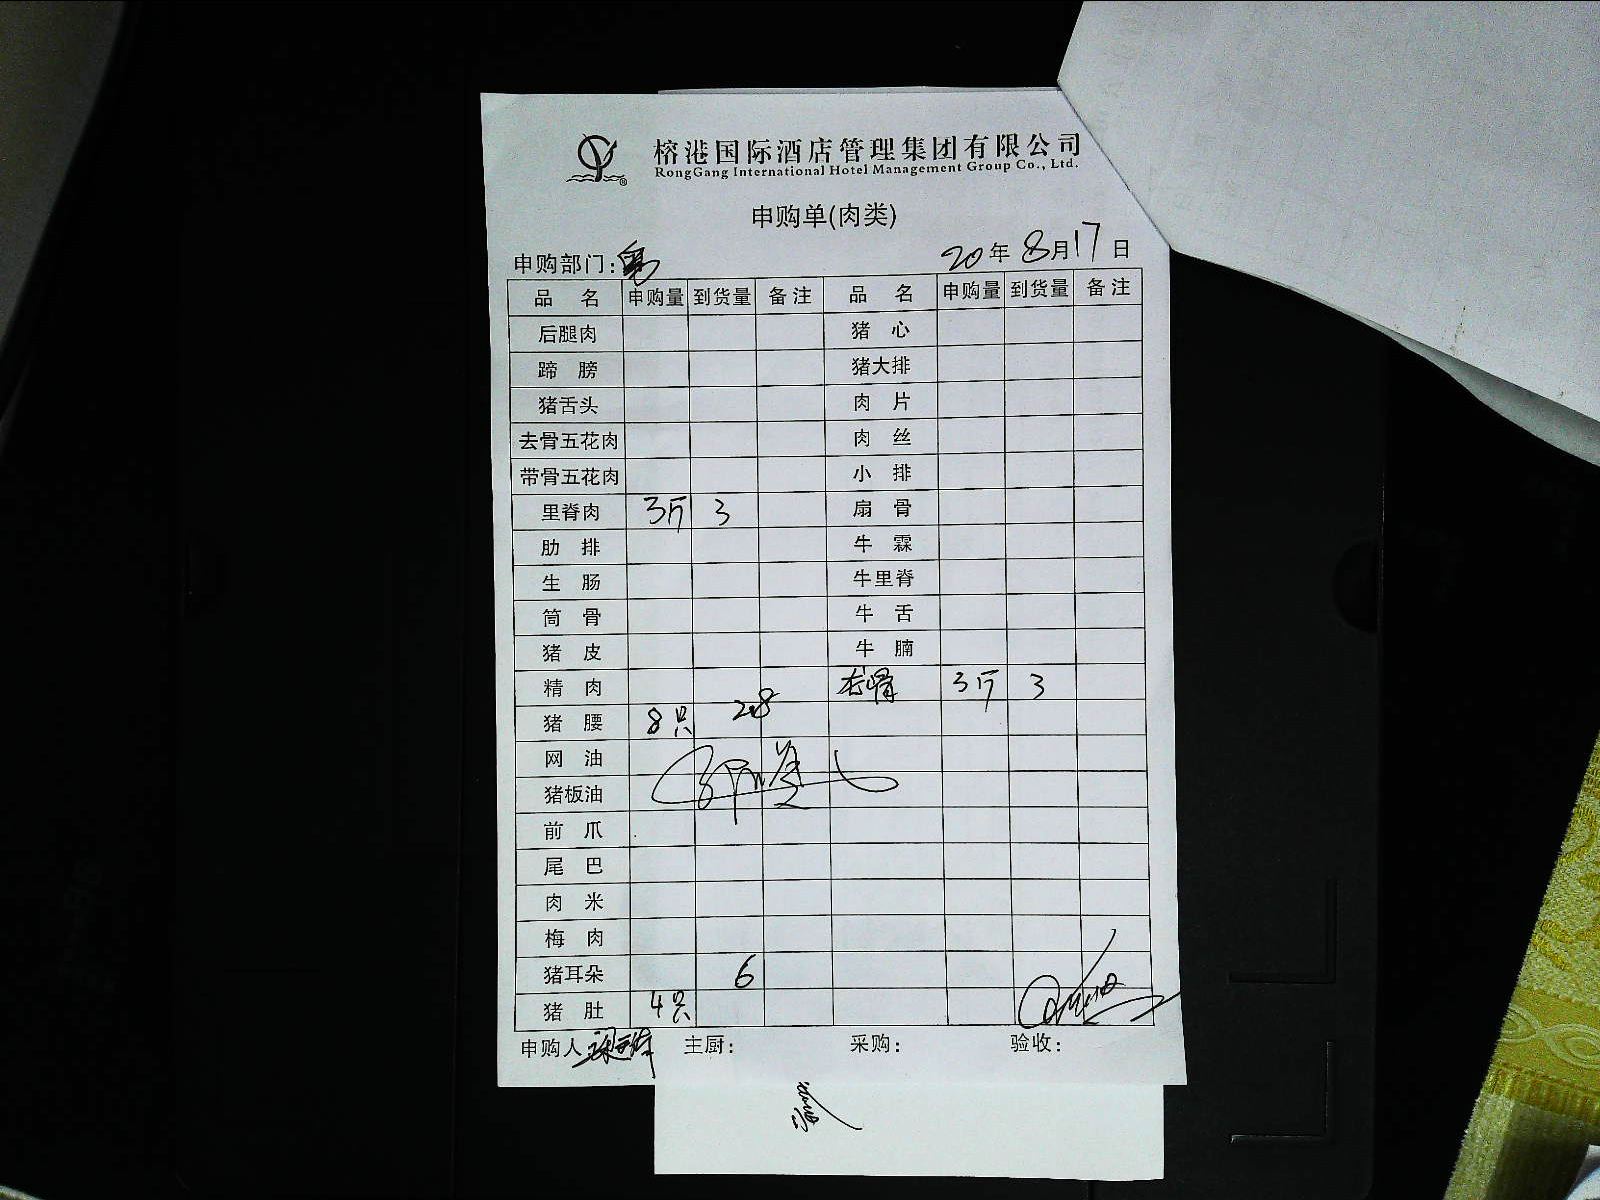 榕港国际酒店管理集团有限公司
RongGang International Hotel Management Group Co., Ltd.
申购单(肉类)
申购部门: 20年8月17日
品 名 申购量 到货量 备注 品 名 申购量 到货量 备注
后腿肉 猪 心
蹄 膀 猪大排
猪舌头 肉 片
去骨五花肉 肉 丝
带骨五花肉 小 排
里脊肉 3斤 3 扇 骨
肋 排 牛 霖
生 肠 牛里脊
筒 骨 牛 舌
猪 皮 牛 腩
精 肉 龙骨 3斤 3
猪 腰 8只 2.8
网 油
猪板油
前 爪
尾 巴
肉 米
梅 肉
猪耳朵 6
猪 肚 4只
申购人 主厨: 采购: 验收: